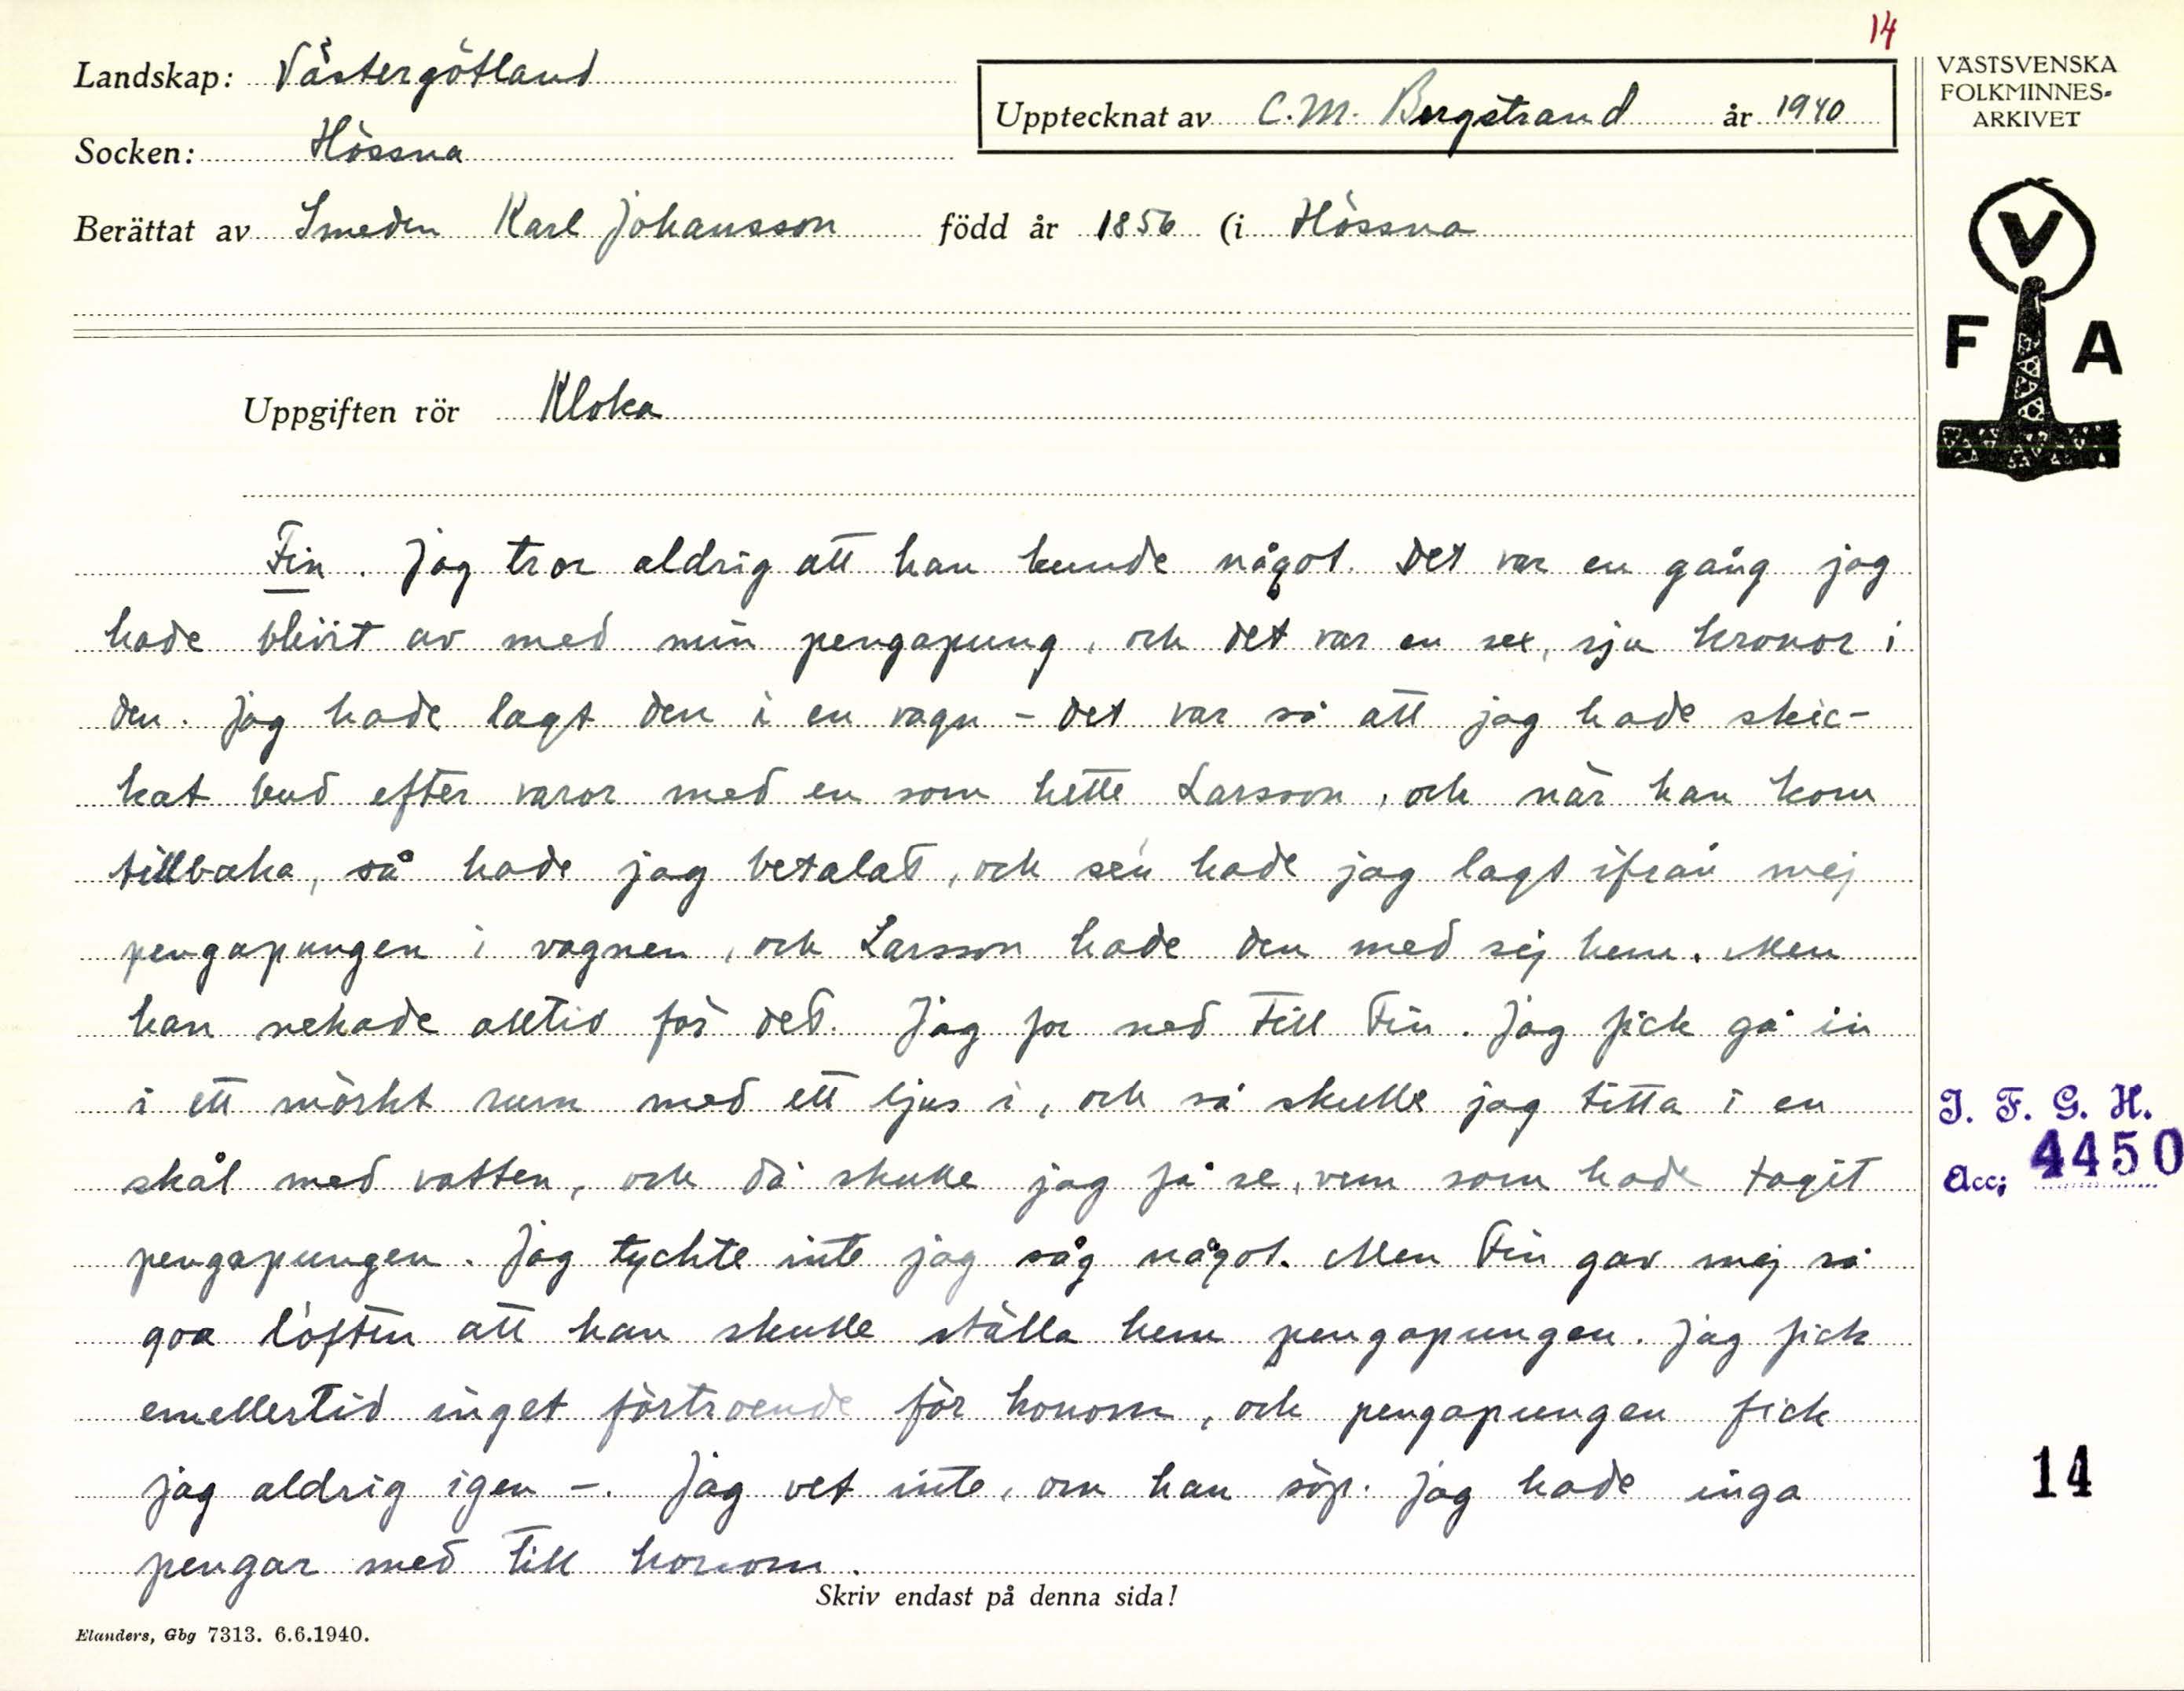 14
Landskap: Västergötland
Upptecknat av C.M. Bergstrand år 1940
Socken: Hössna
Berättat av Smeden Karl Johansson född år 1856 (i Hössna
VÄSTSVENSKA
FOLKMINNES-
ARKIVET
V
F A
Uppgiften rör Kloka
Fin. Jag tror aldrig att han kunde något. Det var en gång jag
hade blivit av med min pengapung, och det var en sex, sju kronor i
den. Jag hade lagt den i en vagn - det var så att jag hade skic-
kat bud efter varor med en som hette Larsson, och när han kom
tillbaka, så hade jag betalat, och sén hade jag lagt ifrån mej
pengapungen i vagnen, och Larsson hade den med sej hem. Men
han nekade alltid för det. Jag for ned till Fin. Jag fick gå in
i ett mörkt rum med ett ljus i, och så skulle jag titta i en
skål med vatten, och då skulle jag få se, vem som hade tagit
pengapungen. Jag tyckte inte jag såg något. Men Fin gav mej så
goa löften att han skulle ställa hem pengapungen. Jag fick
emellertid inget förtroende för honom, och pengapungen fick
jag aldrig igen -. Jag vet inte, om han söp. Jag hade inga
pengar med till honom.
I. F. G. H.
Acc; 4450
14
Skriv endast på denna sida!
Elanders, Gbg 7313. 6.6.1940.